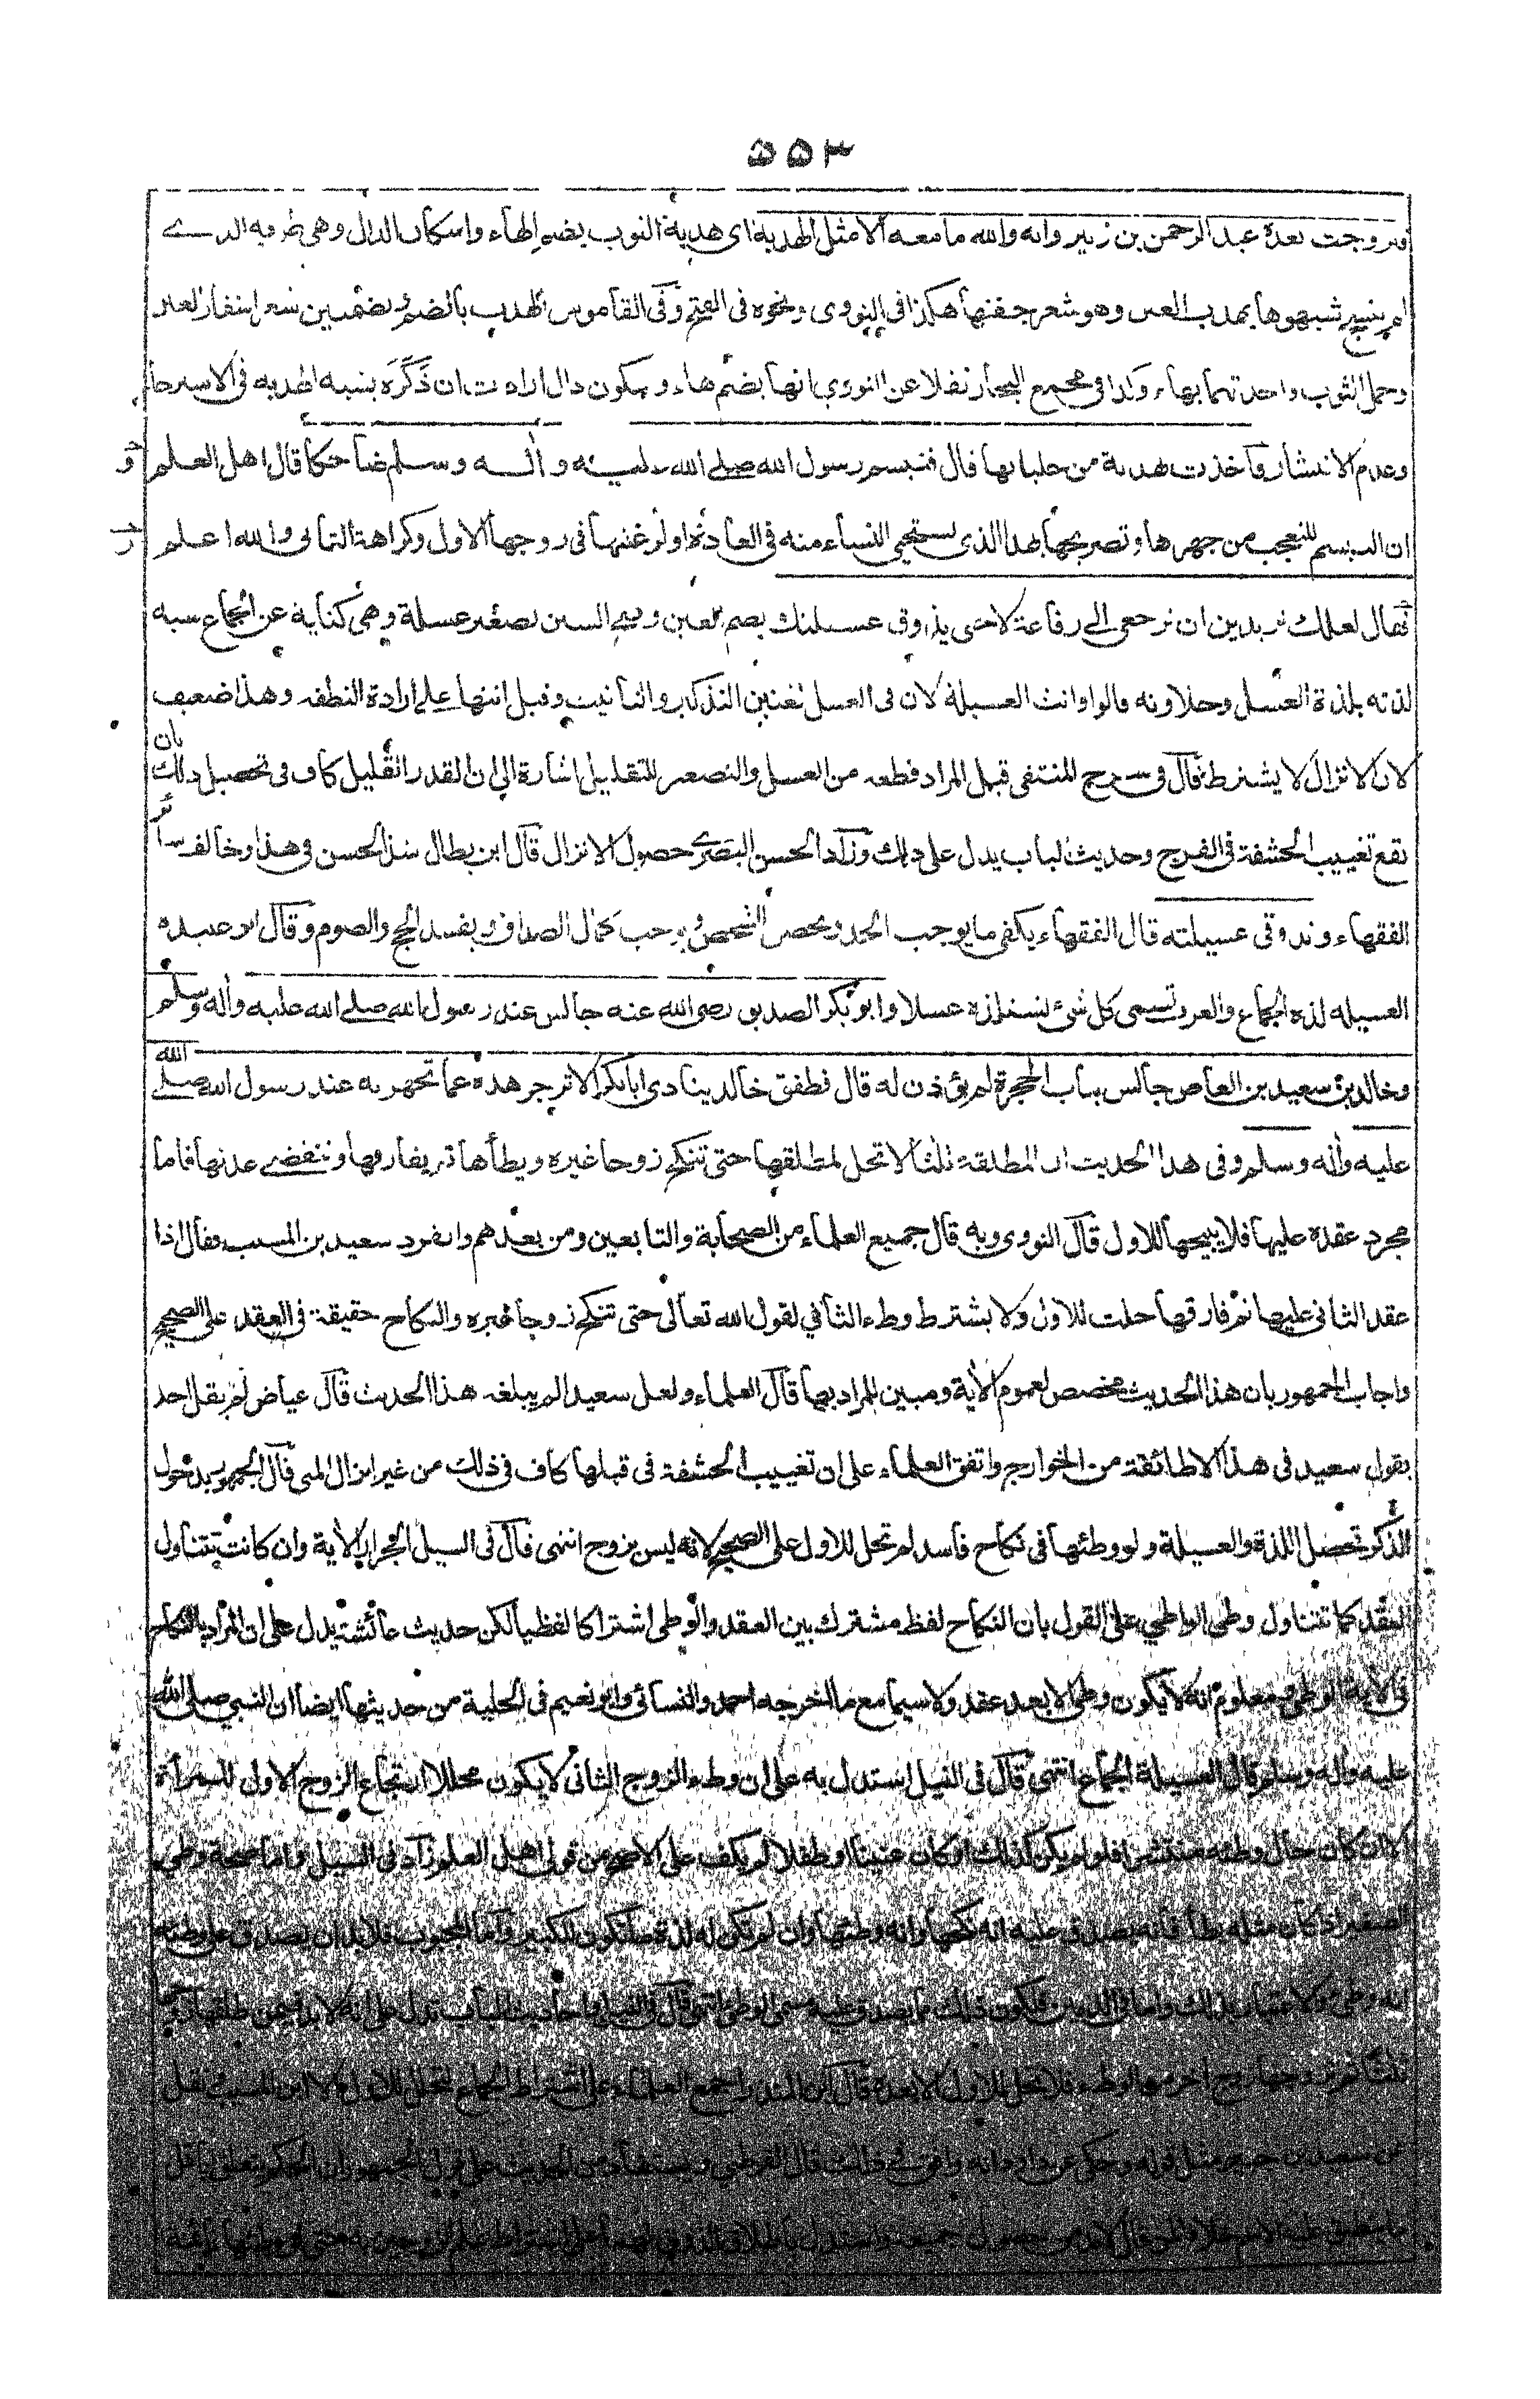 ۵۵۳
فتزوجت بعده عبد الرحمن بن زبير وانه والله ما معه الا مثل الهدبة اى هدبة الثوب بضم الهاء واسكان الدال وهى طرفه الذے
لم ينسج شبهوها بهدب العين وهو شعر جفنها هكذا فى النووى ونحوه فى الفتح وفى القاموس الهدب بالضم وبضمتين شعر اشفار العين
وخمل الثوب واحدتهما بهاء وكذا فى مجمع البحار نقلا عن النووى انها بضم هاء وسكون دال ارادت ان ذَكَرَه يشبه الهدبه فى الاسترخاء
وعدم الانتشار واخذت بهدبة من جلبابها قال فتبسم رسول الله صلى الله عليه واله وسلم ضاحكا قال اهل العلم
ان التبسم للتعجب من جهرها وتصريحها بهذا الذى تستحيى النساء منه فى العادة او لرغبتها فى زوجها الاول وكراهة الثانى والله اعلم
فقال لعلك تريدين ان ترجعى الى رفاعة لا حتى يذوق عسيلتك بضم العين وفتح السين تصغير عسلة وهى كناية عن الجماع شبه
لذته بلذة العسل وحلاوته قالوا وانث العسيلة لان فى العسل لغتين التذكير والتانيث وقيل انثها على ارادة النطفه وهذا ضعيف
لان الانزال لا يشترط قال فى شرح المنتقى قيل المراد قطعه من العسل والتصغير للتقليل اشارة الى ان القدر القليل كاف فى تحصيل ذلك بان
يقع تغييب الحشفة فى الفرج وحديث الباب يدل على ذلك وزاد الحسن البصرے حصول الانزال قال ابن بطال شذ الحسن فى هذا وخالف سائر
الفقهاء وتذوقى عسيلته قال الفقهاء يكفى ما يوجب الحد ويحصن الشخص ويوجب كمال الصداق ويفسد الحج والصوم وقال ابو عبيده
العسيله لذة الجماع والعرب تسمى كل شئ تستلذه عسلا وابو بكر الصديق رضى الله عنه جالس عند رسول الله صلى الله عليه واله وسلم
وخالد بن سعيد بن العاص جالس بباب الحجرة لم يؤذن له قال فطفق خالد ينادى ابا بكر الا تزجر هذه عما تجهر به عند رسول الله صلى الله
عليه واله وسلم وفى هذا الحديث ان المطلقة ثلثا لا تحل لمطلقها حتى تنكح زوجا غيره ويطأها ثم يفارقها وتنقضے عدتها فاما
مجرد عقده عليها فلا يبيحها للاول قال النووى وبه قال جميع العلماء من الصحابة والتابعين ومن بعدهم وانفرد سعيد بن المسيب فقال اذا
عقد الثانى عليها ثم فارقها حلت للاول ولا يشترط وطء الثانى لقول الله تعالى حتى تنكح زوجا غيره والنكاح حقيقة فى العقد على الصحيح
واجاب الجمهور بان هذا الحديث مخصص لعموم الاية ومبين للمراد بها قال العلماء ولعل سعيدا لم يبلغه هذا الحديث قال عياض لم يقل احد
بقول سعيد فى هذا الا طائفة من الخوارج واتفق العلماء على ان تغييب الحشفة فى قبلها كاف فى ذلك من غير انزال المنى قال الجمهور بدخول
الذكر تحصل اللذة والعسيلة ولو وطئها فى نكاح فاسد لم تحل للاول على الصحيح لانه ليس بزوج انتهى قال فى السيل الجرار الاية وان كانت تتناول
العقد كما تتناول وطى الواطى على القول بان النكاح لفظ مشترك بين العقد والوطى اشتراكا لفظيا لكن حديث عائشة يدل على ان المراد بالنكاح
فى الاية الوطى ومعلوم انه لا يكون وطى الا بعد عقد ولا سيما مع ما اخرجه احمد والنسائى وابو نعيم فى الحلية من حديثها ايضا ان النبي صلى الله
عليه واله وسلم قال العسيلة الجماع انتهى قال فى النيل استدل به على ان وطء الزوج الثانى لا يكون محللا ارتجاع الزوج الاول للمرأة
الا ان كان حال وطئه منتشرا فلو لم يكن كذلك او كان عنينا او طفلا لم يكف على الاصح من قولى اهل العلم زاد فى السيل واما صحة وطى
الصغير اذ كان مثله يطأ فانه يصدق عليه انه نكحها وانه وطئها وان لم تكن له لذة كما تكون للكبير واما المجبوب فلا بد ان يصدق على وطئه
انه وطى ولا اعتبار بذلك
ثلثا ثم تزوجها زوج اخر من الوطء فلا تحل للاول الا بعده قال ابن المنذر اجمع العلماء على اشتراط الجماع لتحل للاول الا ابن المسيب